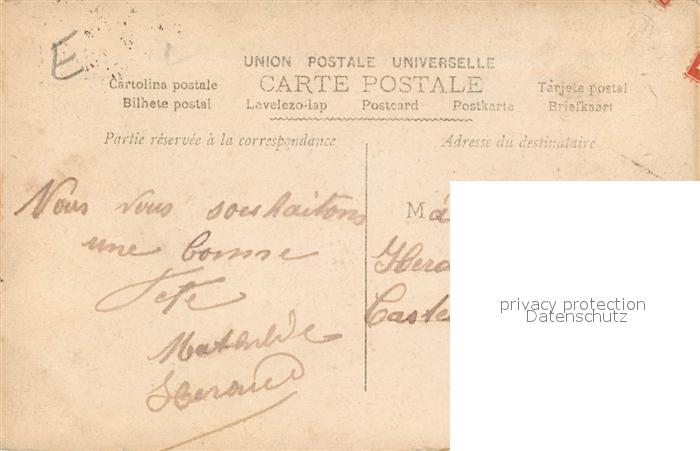 E
UNION POSTALE UNIVERSELLE
CARTE POSTALE
Cartolina postale
Tarjeta postal
Bilhete postal
Levelezo-lap
Postcard
Postkarte
Briefkaart
Partie réservée à la correspondance
Adresse du destinataire
Nous vous souhaitons
une bonne
Fete
Mathilde
M
privacy protection
Datenschutz